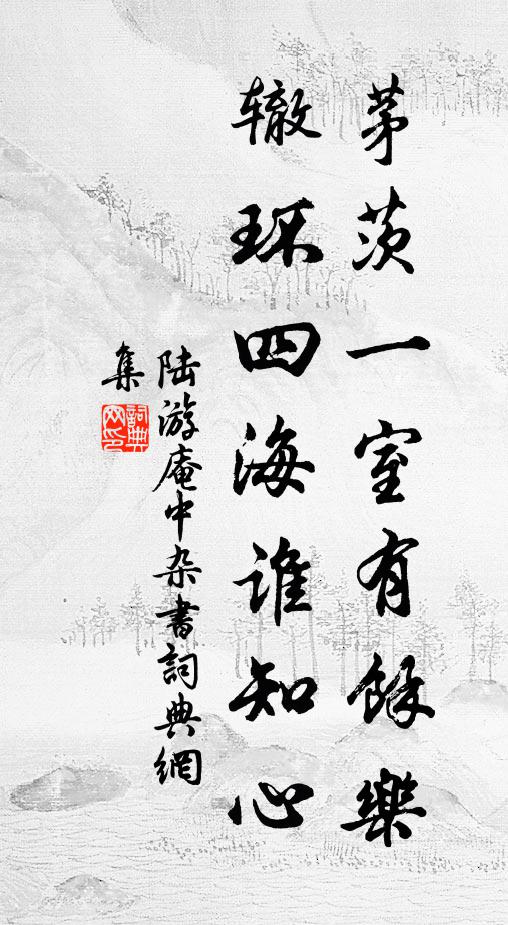 茅茨一室有餘樂
辙环四海谁知心
陆游庵中杂書詞典網
集
詞典网印